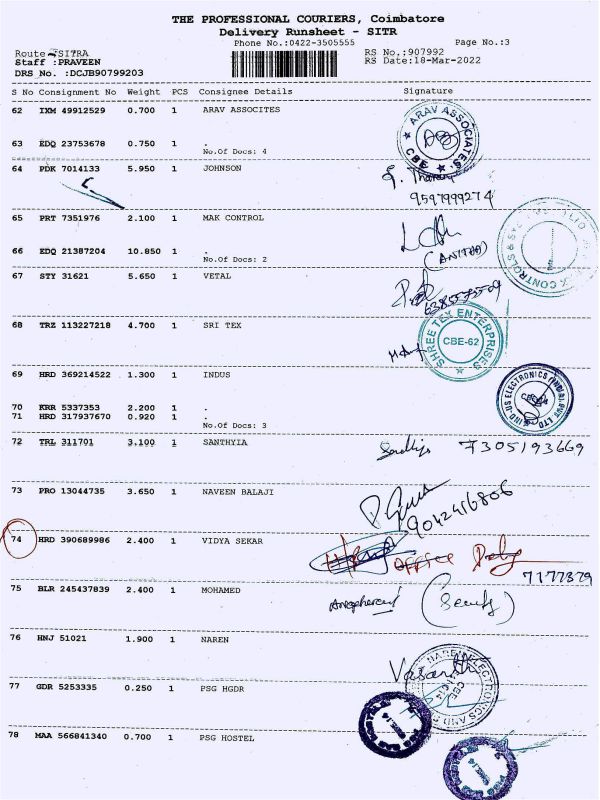 THE PROFESSIONAL COURIERS, Coimbatore
Delivery Runsheet - SITR
Phone No.:0422-3505555
Page No.:3
Route :SITRA
RS No.:907992
Staff :PRAVEEN
RS Date:18-Mar-2022
DRS No. :DCJB90799203
S No Consignment No Weight PCS Consignee Details Signature
62 IXM 49912529 0.700 1 ARAV ASSOCITES
ARAV ASSOCIATES
CBE
63 EDQ 23753678 0.750 1 .
No.Of Docs: 4
64 PDK 7014133 5.950 1 JOHNSON
9597999274
65 PRT 7351976 2.100 1 MAK CONTROL
(ANITHA)
66 EDQ 21387204 10.850 1 .
No.Of Docs: 2
67 STY 31621 5.650 1 VETAL
68 TRZ 113227218 4.700 1 SRI TEX
SHREE TEX ENTERPRISES
CBE-62
69 HRD 369214522 1.300 1 INDUS
70 KRR 5337353 2.200 1 .
71 HRD 317937670 0.920 1 .
No.Of Docs: 3
72 TRL 311701 3.100 1 SANTHYIA
7305193669
73 PRO 13044735 3.650 1 NAVEEN BALAJI
9042416806
74 HRD 390689986 2.400 1 VIDYA SEKAR
office
7177379
75 BLR 245437839 2.400 1 MOHAMED
76 HNJ 51021 1.900 1 NAREN
Vasanthi
77 GDR 5253335 0.250 1 PSG HGDR
78 MAA 566841340 0.700 1 PSG HOSTEL